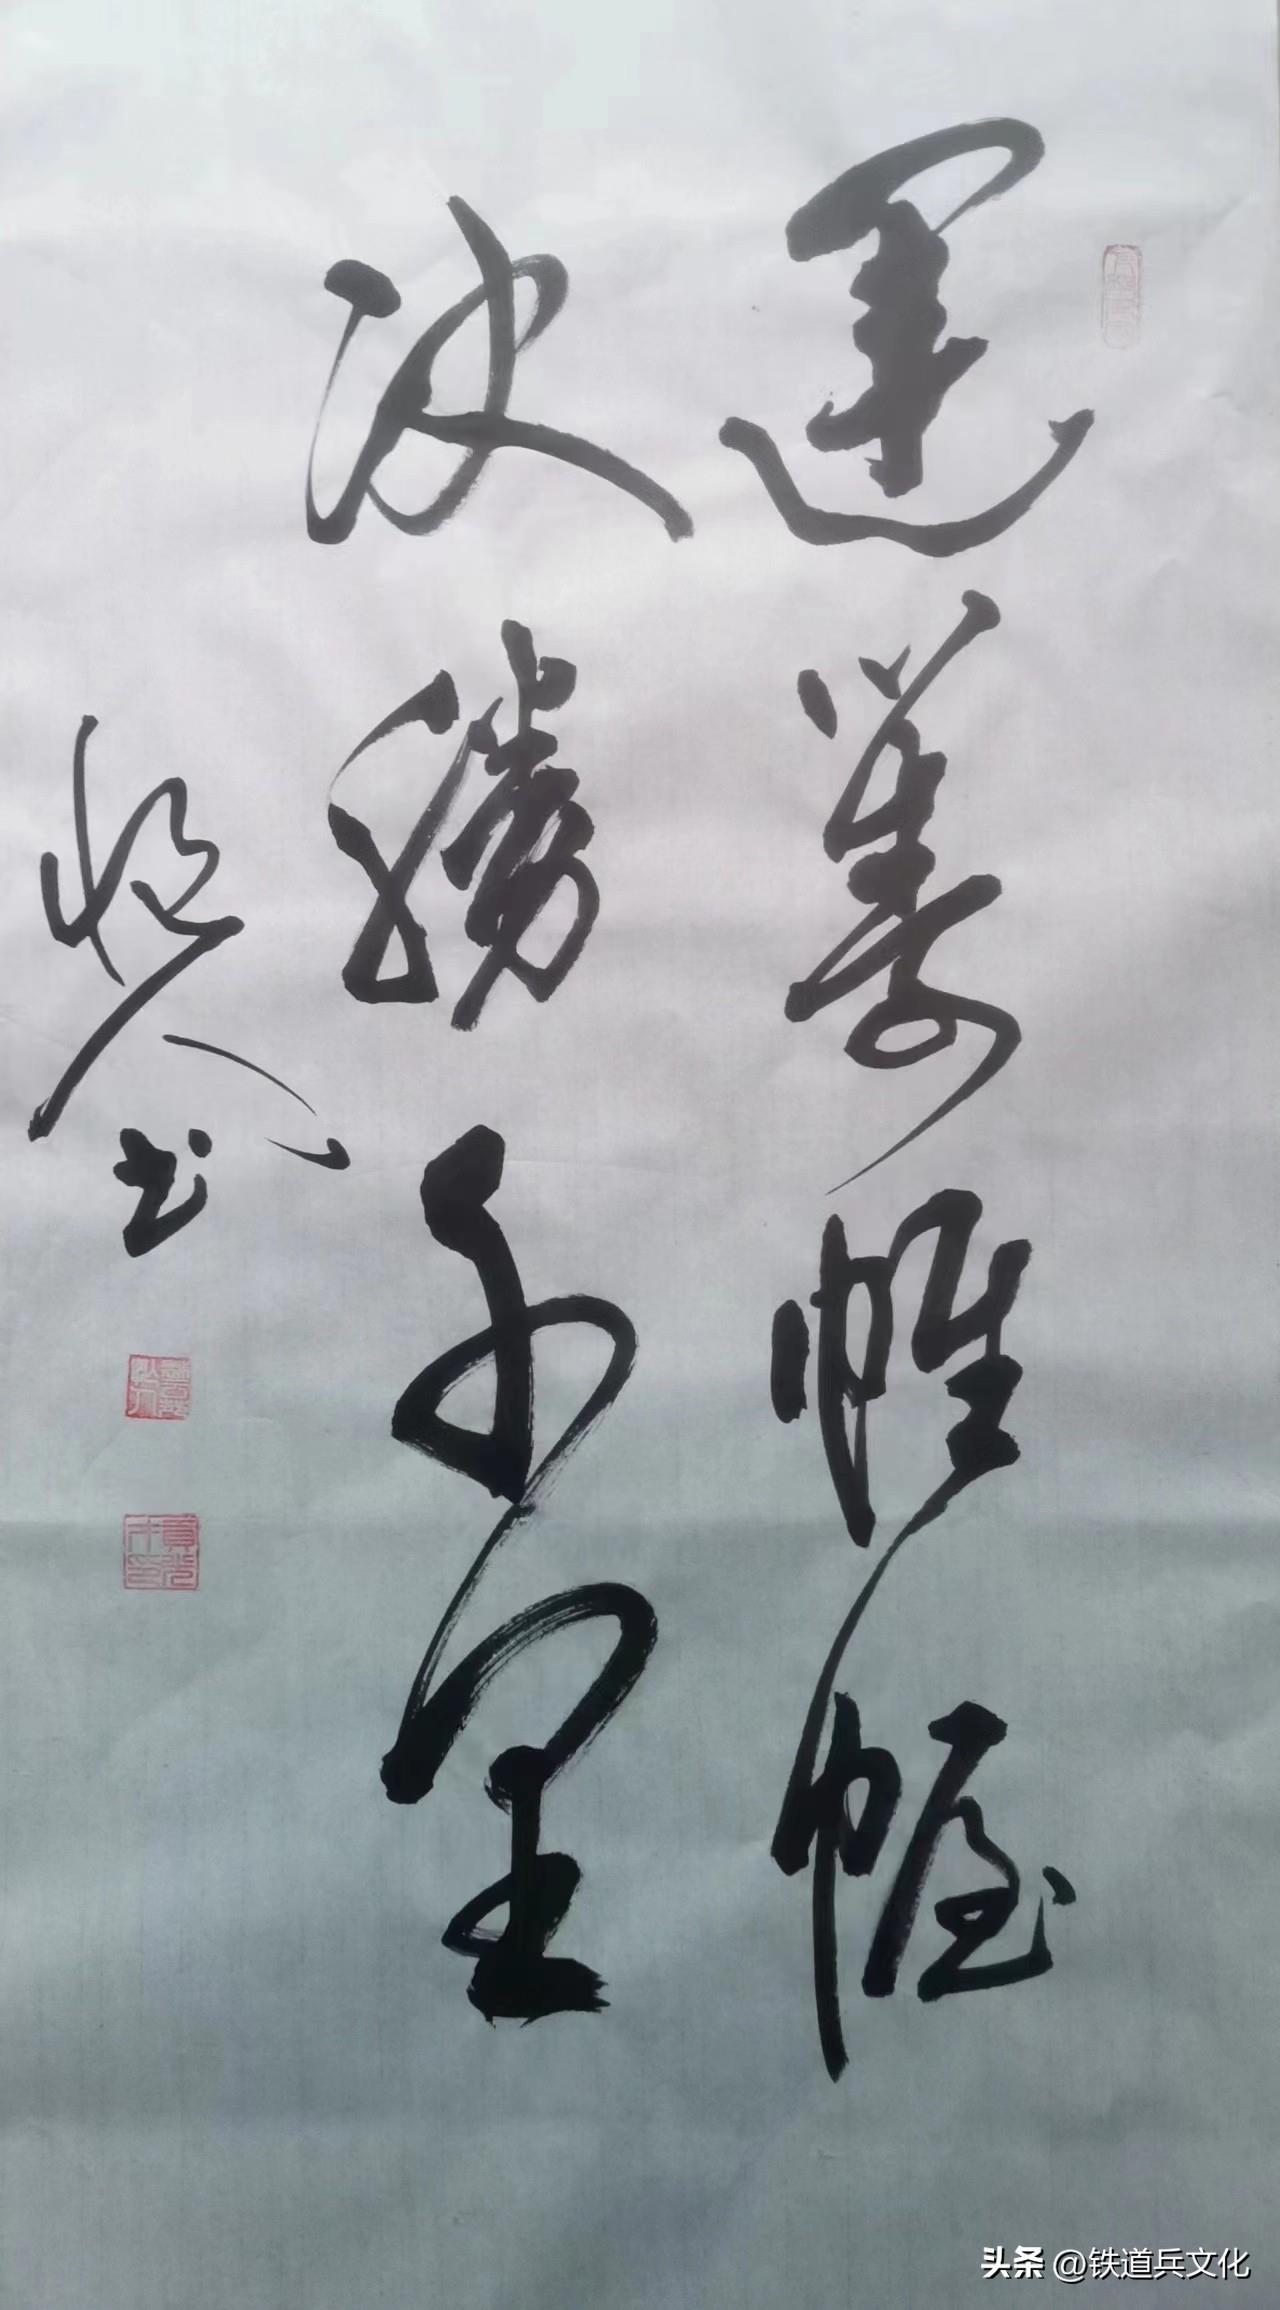 運籌帷幄
決勝千里
書
头条 @铁道兵文化